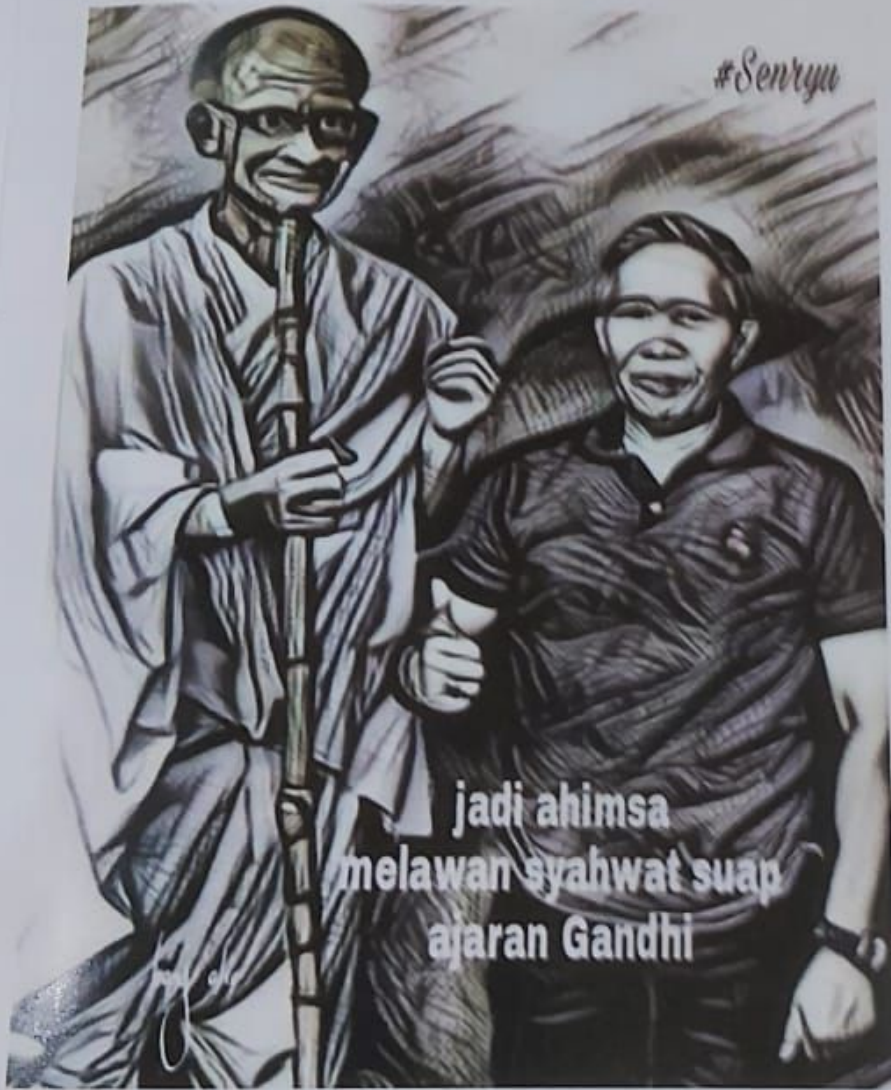 #Senryu
jadi ahimsa
melawan syahwat suap
ajaran Gandhi